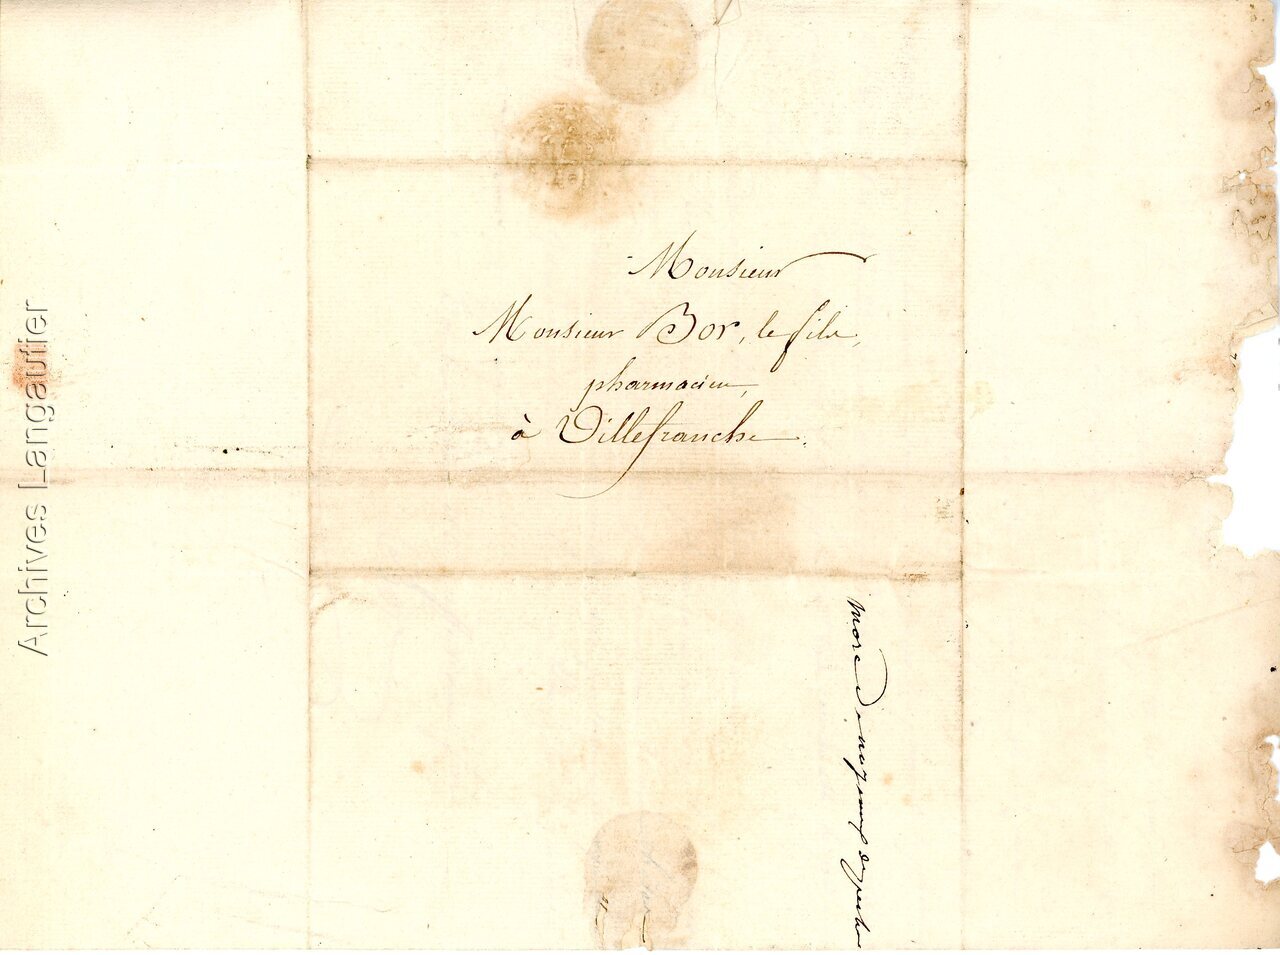 Monsieur
Monsieur Bor, le fils,
pharmacien,
à Villefranche.
Archives Langautier